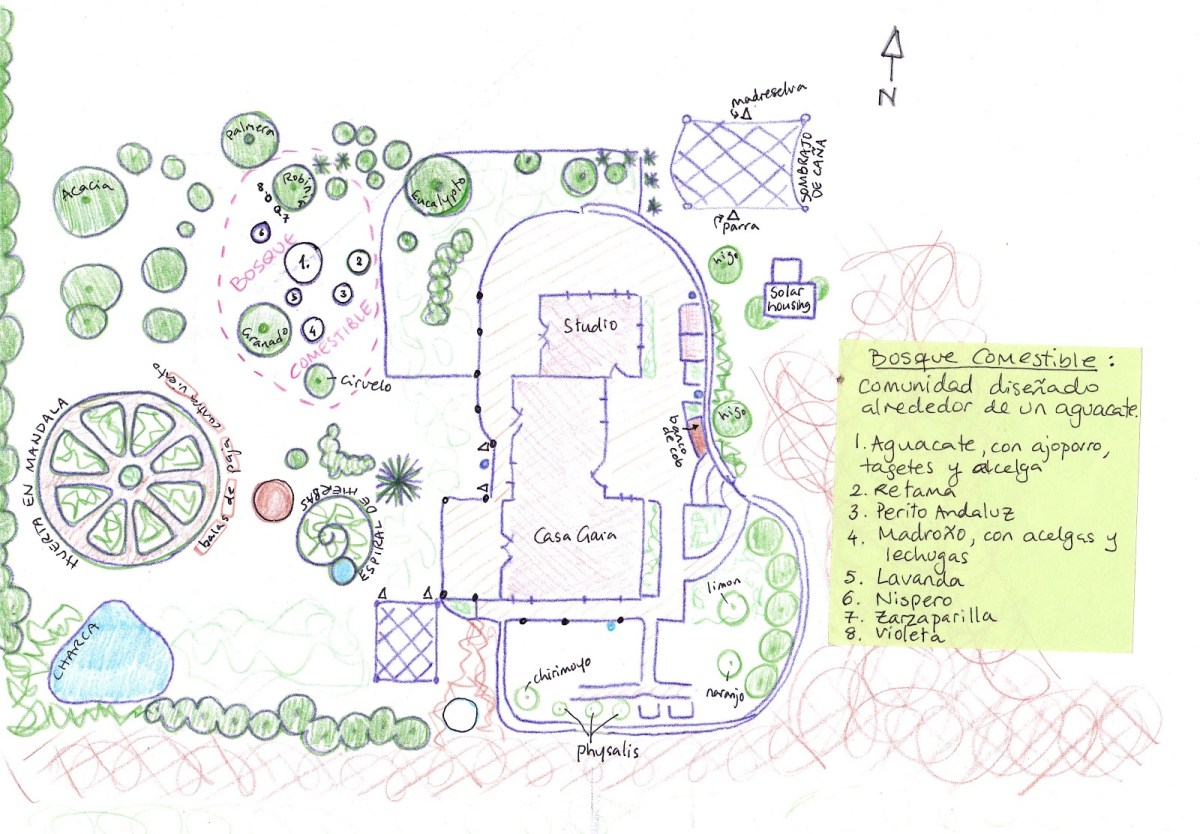 N
madreselva
SOMBRAJO
DE CAÑA
parra
Palmera
Acacia
Robin
Eucalypto
8
7
6
1.
2
5
3
4
BOSQUE
COMESTIBLE
Granado
Ciruelo
higo
Solar
housing
Studio
higo
banco
de cob
HUERTA EN MANDALA
balas de
paja contra viento
ESPIRAL DE HIERBAS
Casa Gaia
CHARCA
limon
naranjo
chirimoyo
physalis
Bosque Comestible :
comunidad diseñado
alrededor de un aguacate.
1. Aguacate, con ajoporro,
tagetes y alcelga
2. Retama
3. Perito Andaluz
4. Madroño, con acelgas y
lechugas
5. Lavanda
6. Nispero
7. Zarzaparilla
8. Violeta